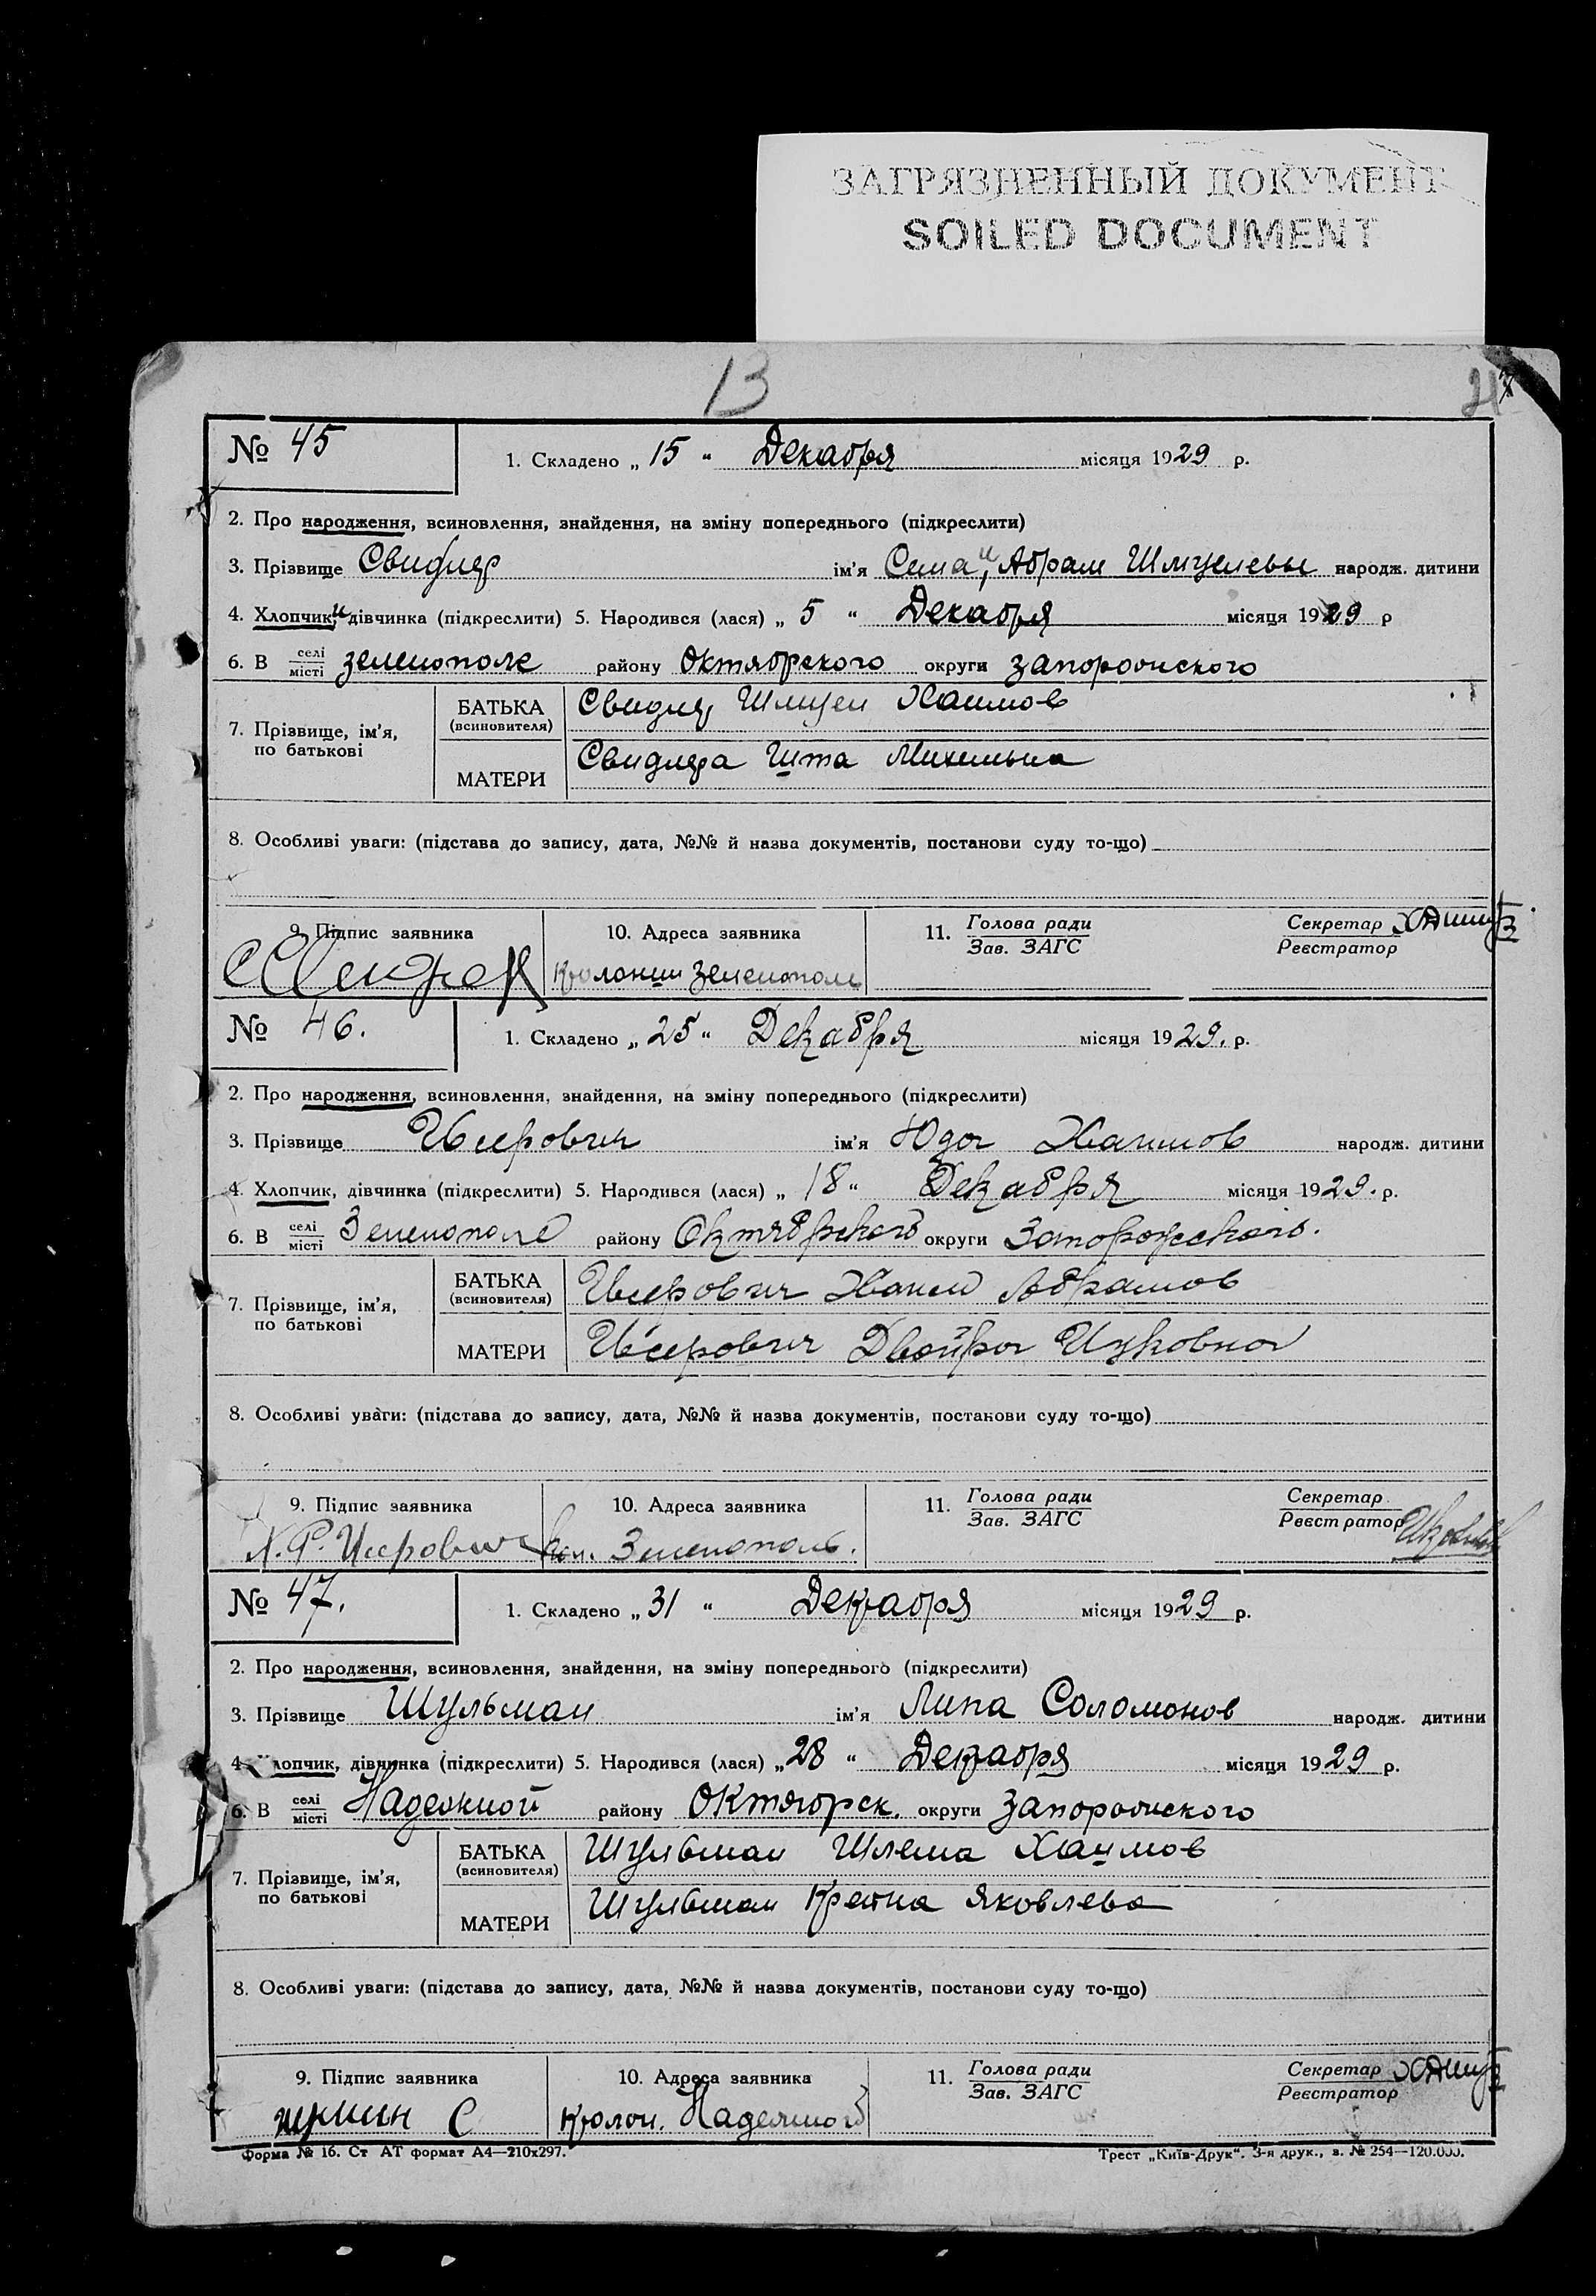 ЗАГРЯЗНЕННЫЙ ДОКУМЕНТ
SOILED DOCUMENT
13
№ 45
1. Складено „ 15 “ Декабря місяця 1929 р.
2. Про народження, всиновлення, знайдення, на зміну попереднього (підкреслити)
3. Прізвище Свидлер ім'я Сима, и Абрам Шмулевы народж. дитини
4. Хлопчик, и дівчинка (підкреслити) 5. Народився (лася) „ 5 “ Декабря місяця 1929 р
6. В селі місті зеленополе району Октябрского округи запорожского
7. Прізвище, ім'я, по батькові
БАТЬКА (всиновителя) Свидлер Шмуел Хаимов
МАТЕРИ Свидлера Ита Михельна
8. Особливі уваги: (підстава до запису, дата, №№ й назва документів, постанови суду то-що)
9. Підпис заявника
10. Адреса заявника колонии зеленополе
11. Голова ради Зав. ЗАГС
Секретар Реєстратор
№ 46.
1. Складено „ 25 “ Декабря місяця 1929. р.
2. Про народження, всиновлення, знайдення, на зміну попереднього (підкреслити)
3. Прізвище ім'я Юда Хаимов народж. дитини
4. Хлопчик, дівчинка (підкреслити) 5. Народився (лася) „ 18 “ Декабря місяця 1929. р.
6. В селі місті Зеленополе району Октябрского округи Запорожского.
7. Прізвище, ім'я, по батькові
БАТЬКА (всиновителя) Хаим Абрамов
МАТЕРИ Двойра Ицковна
8. Особливі уваги: (підстава до запису, дата, №№ й назва документів, постанови суду то-що)
9. Підпис заявника
10. Адреса заявника кол. Зеленополь.
11. Голова ради Зав. ЗАГС
Секретар Реєстратор
№ 47.
1. Складено „ 31 “ Декабря місяця 1929 р.
2. Про народження, всиновлення, знайдення, на зміну попереднього (підкреслити)
3. Прізвище Шульман ім'я Липа Соломонов народж. дитини
4. Хлопчик, дівчинка (підкреслити) 5. Народився (лася) „ 28 “ Декабря місяця 1929 р.
6. В селі місті Надежной району Октябрск. округи запорожского
7. Прізвище, ім'я, по батькові
БАТЬКА (всиновителя) Шульман Шлема Хаимов
МАТЕРИ Шульман Крейна Яковлева
8. Особливі уваги: (підстава до запису, дата, №№ й назва документів, постанови суду то-що)
9. Підпис заявника
10. Адреса заявника колон. Надежной
11. Голова ради Зав. ЗАГС
Секретар Реєстратор
Форма № 16. Ст АТ формат А4—210х297.
Трест „Київ-Друк“. 3-я друк., з. № 254—120.000.